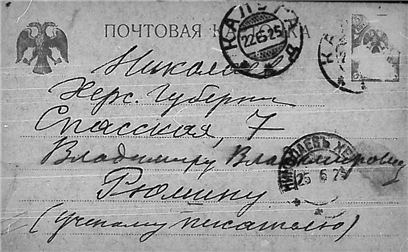 ПОЧТОВАЯ КАРТОЧКА
КАЛУГА
22 6 25
Николаев
Херс. Губерни
Спасская, 7
Владимиру Владимировичу
Рюмину
(ученому писателю)
НИКОЛАЕВЪ ХЕР
25 6 25